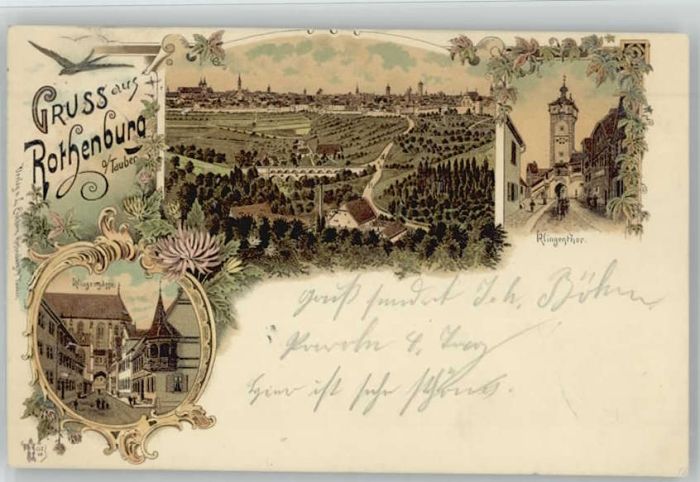 GRUSS aus
Rothenburg
o/Tauber
Klingenthor.
Klingengasse
Gruß sendet Joh. Böhm
Hier ist sehr schön.